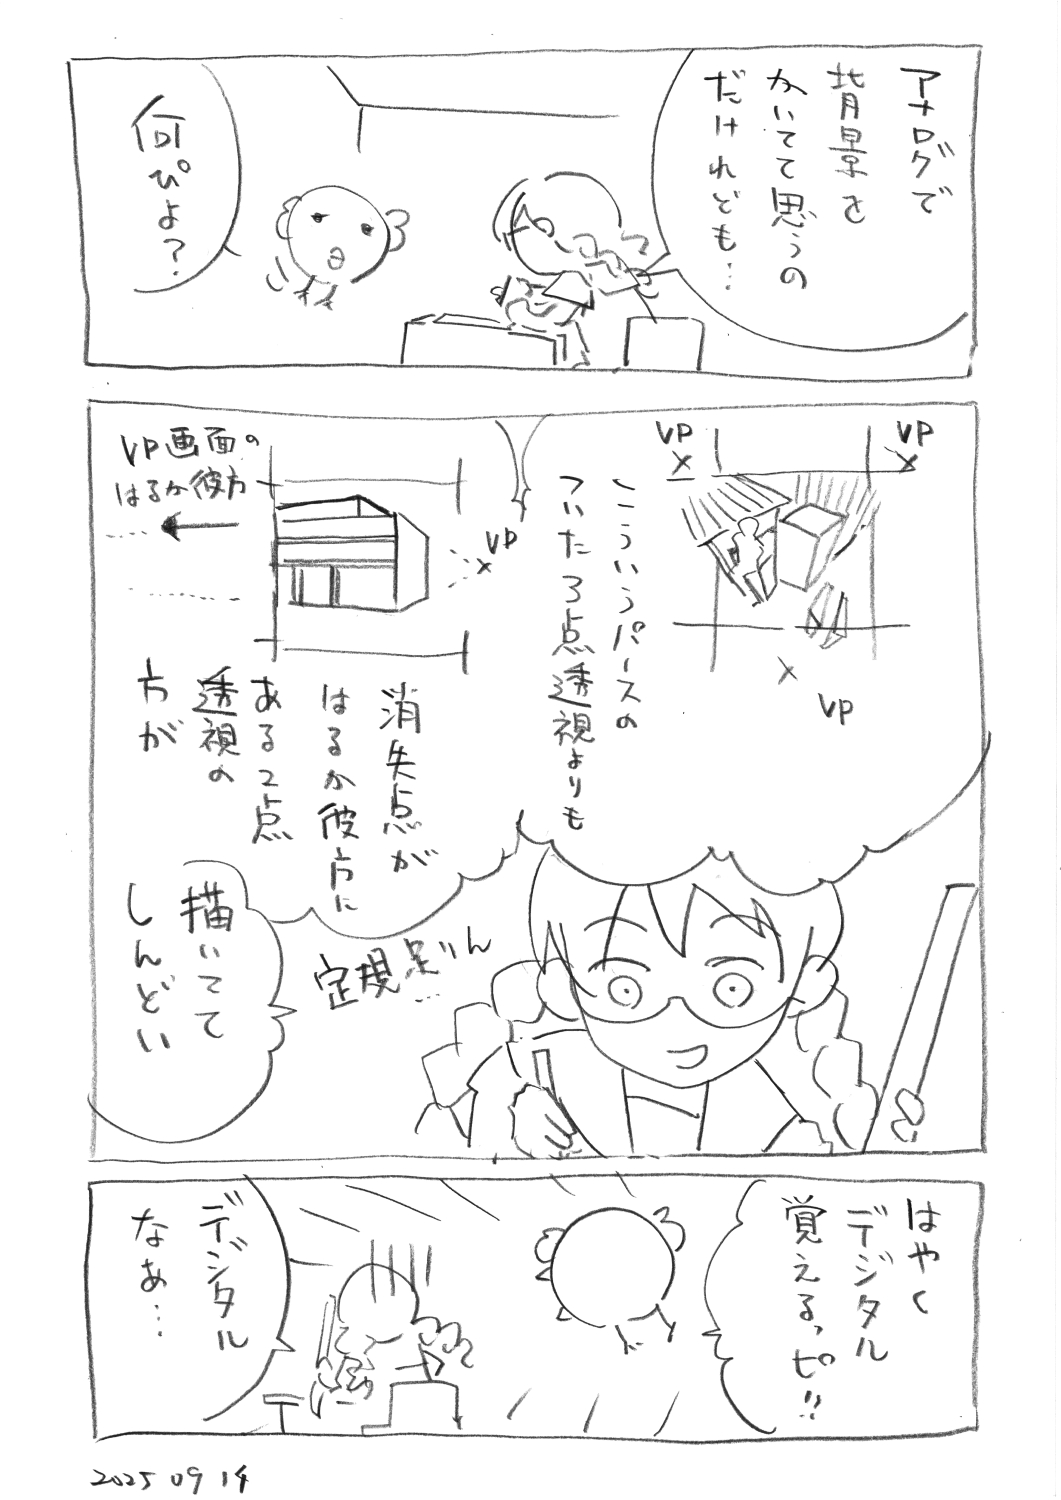 アナログで
背景を
かいてて思うの
だけれども…
何ぴよ？
VP
VP
VP
こういうパースの
ついた3点透視よりも
VP画面の
はるか彼方
VP
消失点が
はるか彼方に
ある2点
透視の
方が
描いてて
しんどい
定規足りん
…
はやく
デジタル
覚えるっピ!!
デジタル
なぁ…
2025 09 14